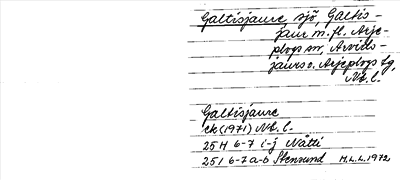 Galtisjaure, sjö, Galtis-
jaur m.fl. Arje-
plogs sn, Arvids-
jaurs o. Arjeplogs tg,
Nb. l.
Galtisjaure
ek (1971) Nb. l.
25H 6-7 i-j Nåtti
25I 6-7 a-b Stensund M.L.L. 1972